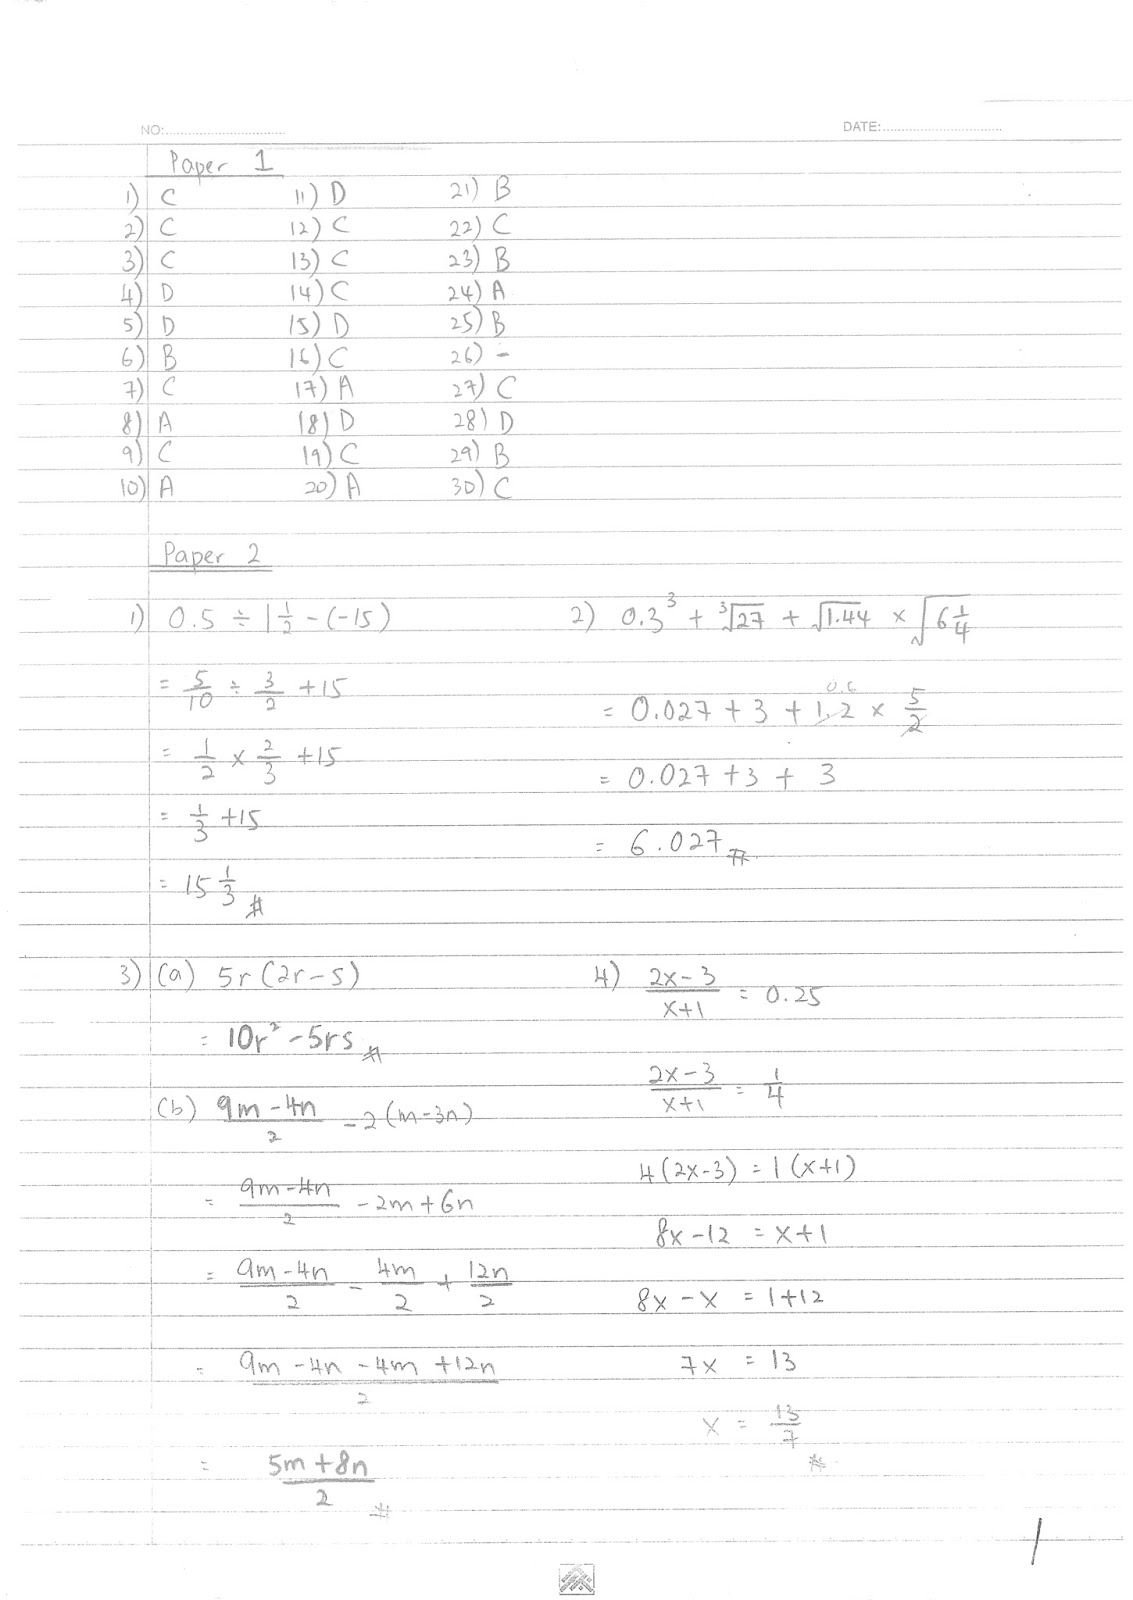 NO: DATE:
Paper 1
1) C 11) D 21) B
2) C 12) C 22) C
3) C 13) C 23) B
4) D 14) C 24) A
5) D 15) D 25) B
6) B 16) C 26) -
7) C 17) A 27) C
8) A 18) D 28) D
9) C 19) C 29) B
10) A 20) A 30) C
Paper 2
1) 0.5 ÷ 1 1/2 - (-15)
= 5/10 ÷ 3/2 + 15
= 1/2 × 2/3 + 15
= 1/3 + 15
= 15 1/3 #
2) 0.3³ + ³√27 + √1.44 × √(6 1/4)
0.6
= 0.027 + 3 + 1.2 × 5/2
= 0.027 + 3 + 3
= 6.027 #
3) (a) 5r (2r - s)
= 10r² - 5rs #
(b) (9m - 4n)/2 - 2 (m - 3n)
= (9m - 4n)/2 - 2m + 6n
= (9m - 4n)/2 - 4m/2 + 12n/2
= (9m - 4n - 4m + 12n)/2
= (5m + 8n)/2 #
4) (2x - 3)/(x + 1) = 0.25
(2x - 3)/(x + 1) = 1/4
4 (2x - 3) = 1 (x + 1)
8x - 12 = x + 1
8x - x = 1 + 12
7x = 13
x = 13/7 #
1